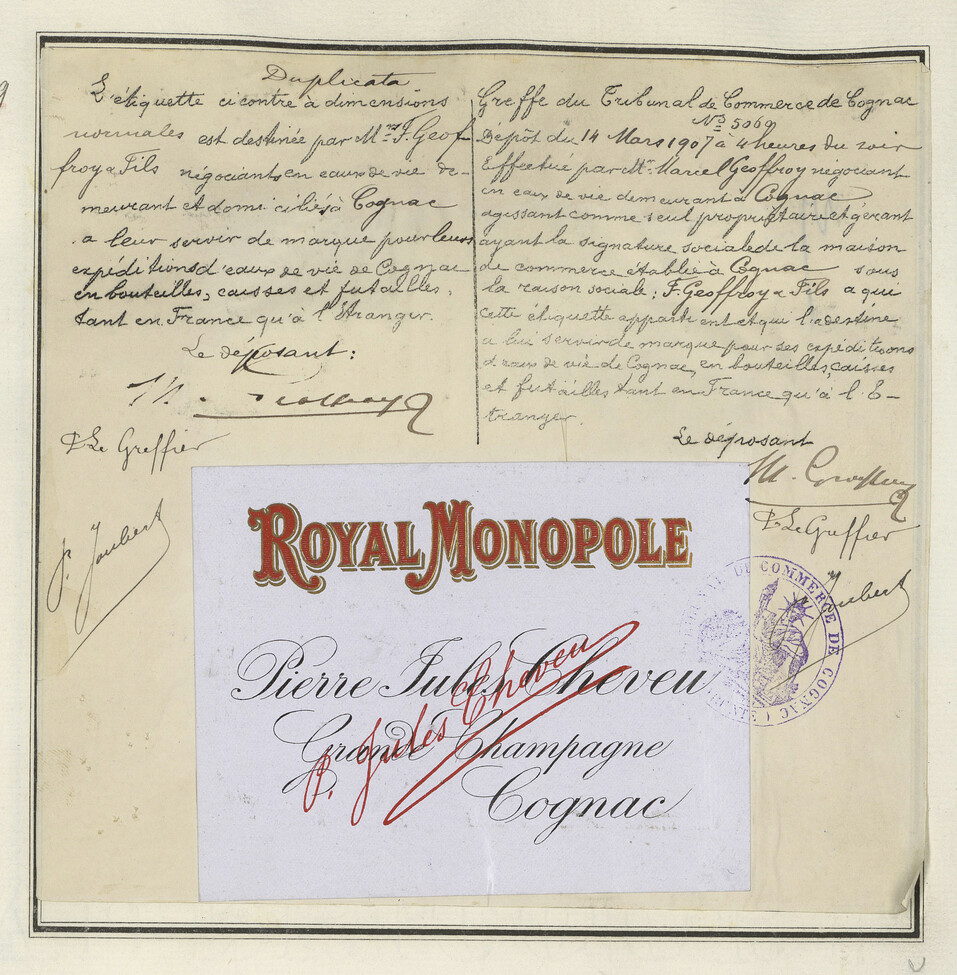 Duplicata
L'étiquette ci contre à dimensions
normales est destinée par Mrs F. Geof-
froy & Fils négociants en eaux de vie de-
meurant et domiciliés à Cognac
a leur servir de marque pour leurs
expéditions d'eaux de vie de Cognac
en bouteilles, caisses et futailles,
tant en France qu'à l'Étranger.
Le déposant:
P. Le Greffier
J. Joubert
Greffe du Tribunal de Commerce de Cognac
No 5069
Dépôt du 14 Mars 1907 à 4 heures du soir
Effectué par Mr. Marcel Geoffroy négociant
en eaux de vie demeurant à Cognac
agissant comme seul propriétaire et gérant
ayant la signature sociale de la maison
de commerce établie à Cognac sous
la raison sociale: F. Geoffroy & Fils a qui
cette étiquette appartient et qui la destine
a lui servir de marque pour ses expéditions
d'eaux de vie de Cognac, en bouteilles, caisses
et futailles tant en France qu'à l'E-
tranger.
Le déposant
M. Geoffroy
P. Le Greffier
Joubert
ROYAL MONOPOLE
Pierre Jules Cheveu
P. Jules Cheveu
Grande Champagne
Cognac
TRIBUNAL DE COMMERCE DE COGNAC